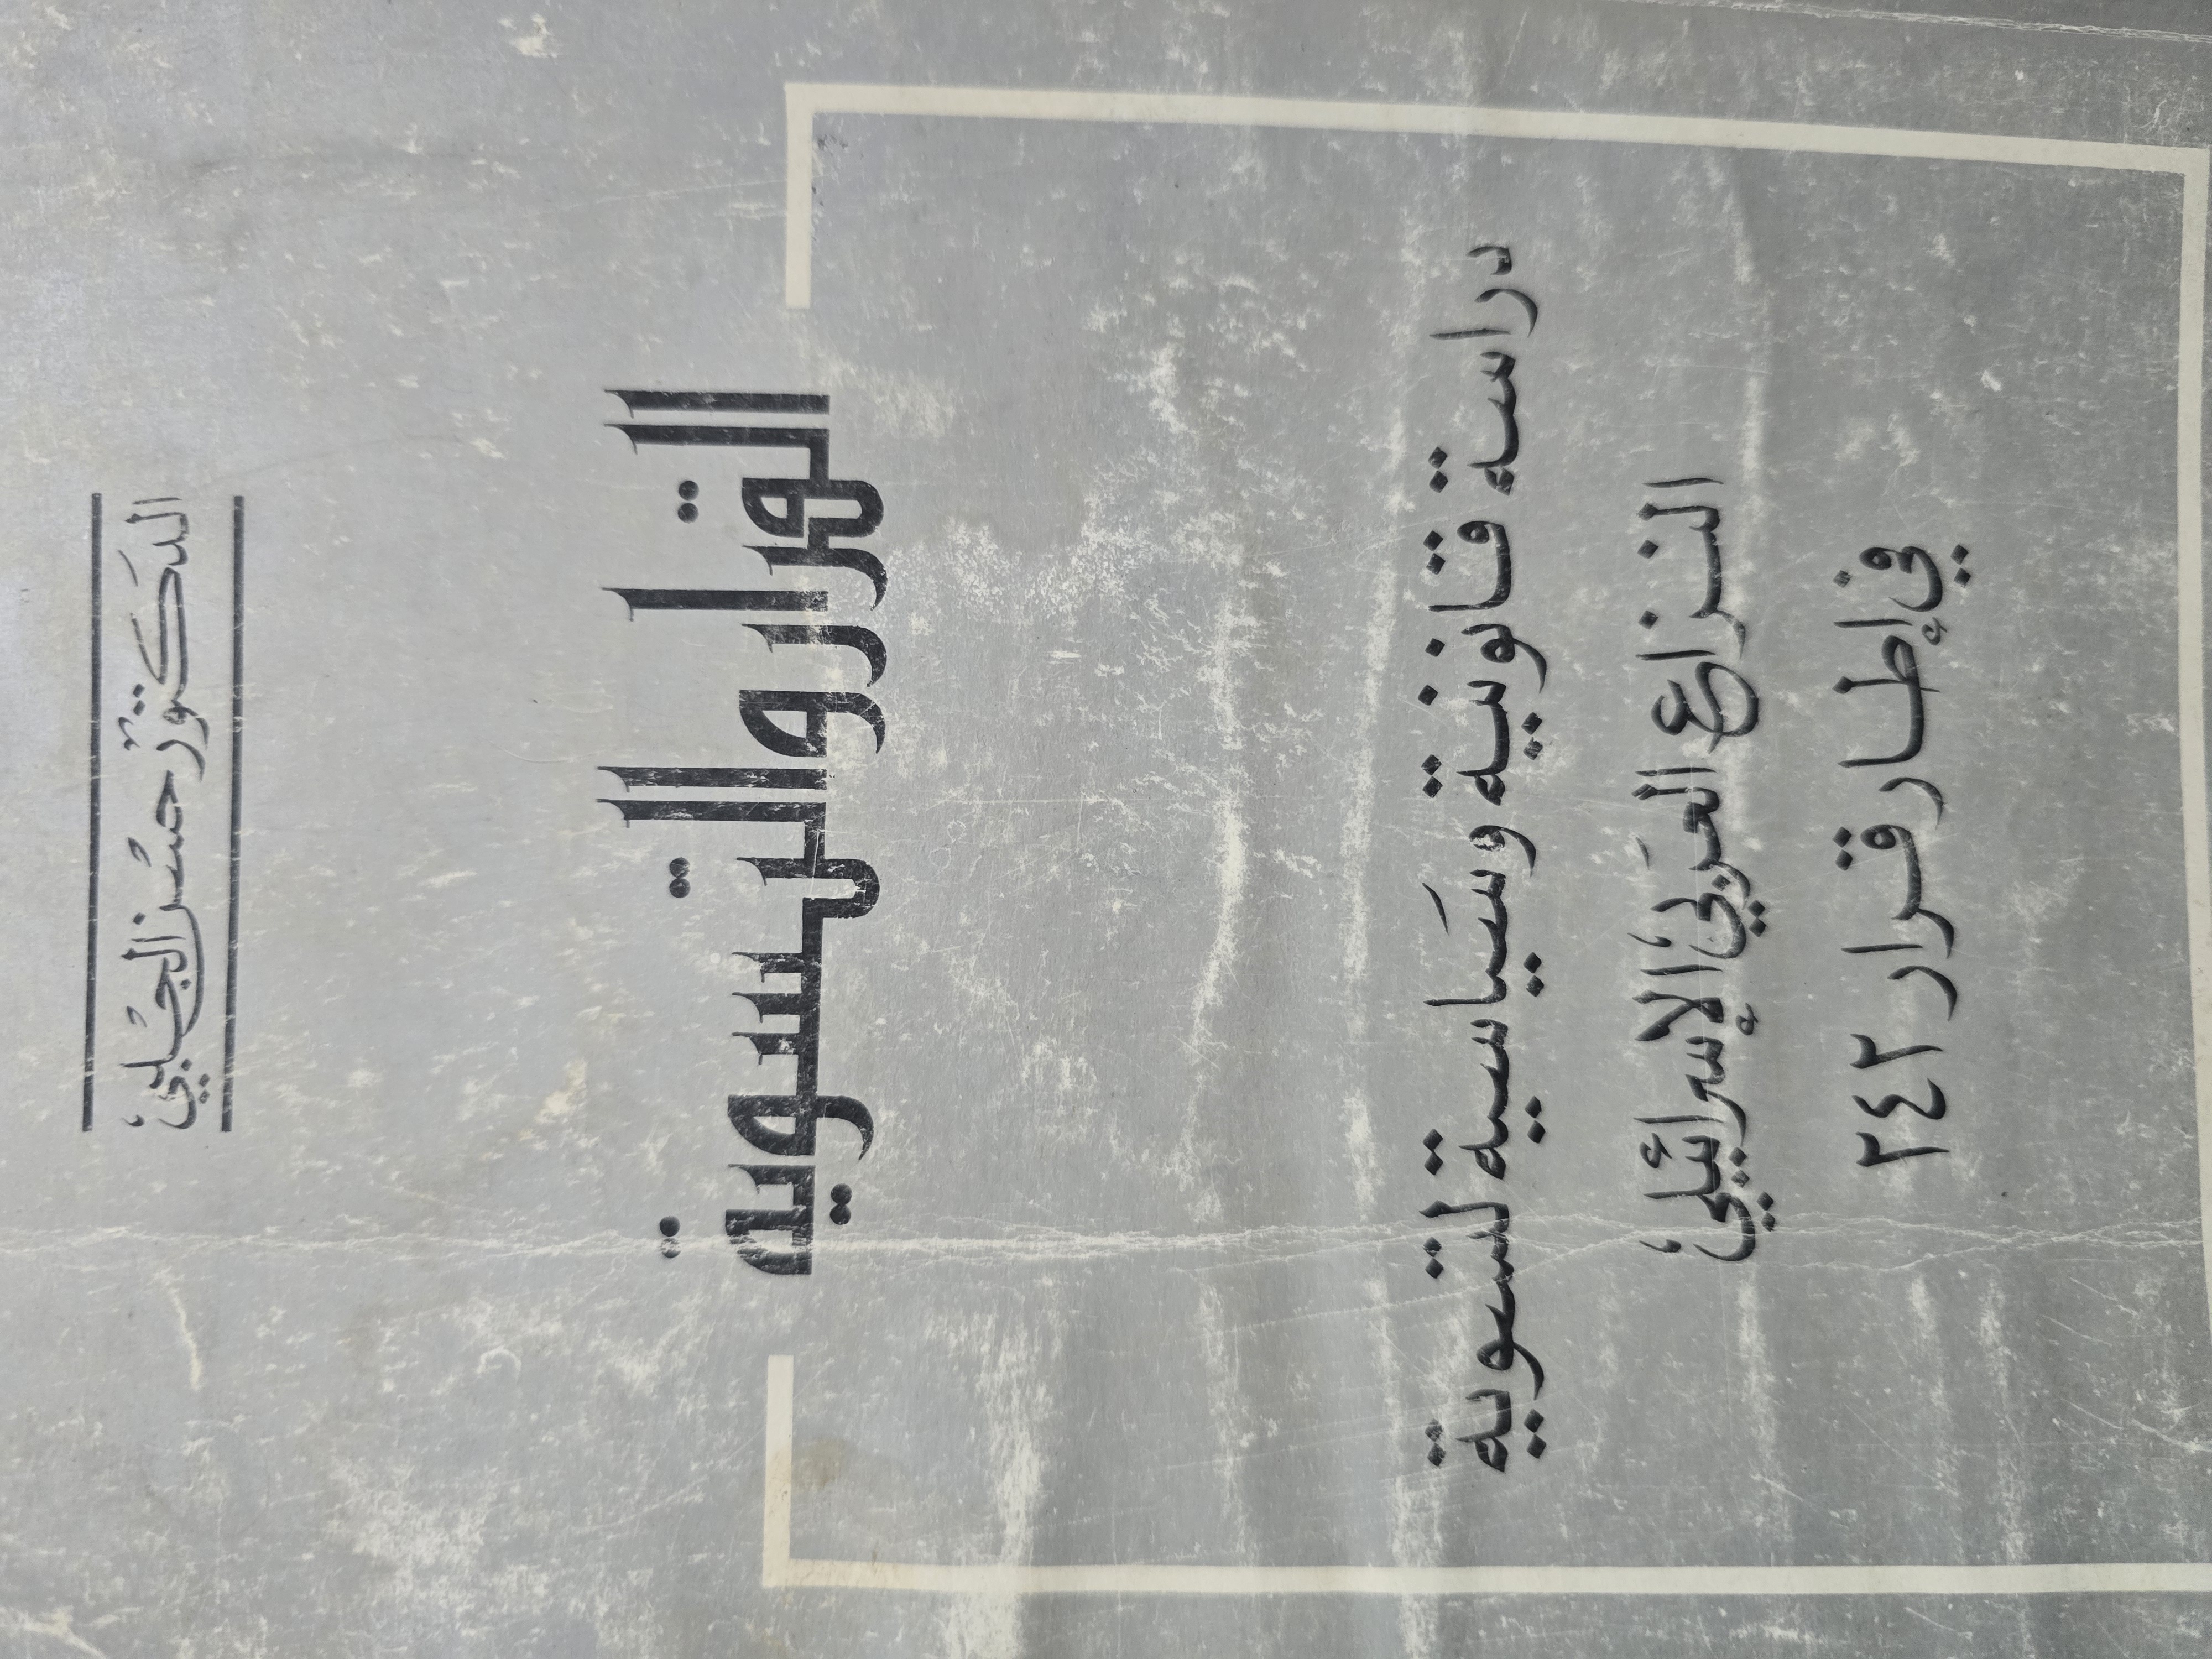 الدكتور حسن الجلبي
القرار والتسوية
دراسة قانونية وسياسية لتسوية
النزاع العربي الإسرائيلي
في إطار قرار ٢٤٢